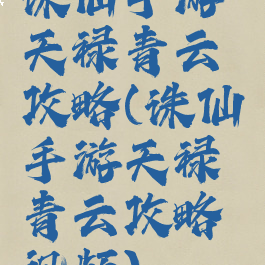 诛仙手游
天禄青云
攻略(诛仙
手游天禄
青云攻略
视频)